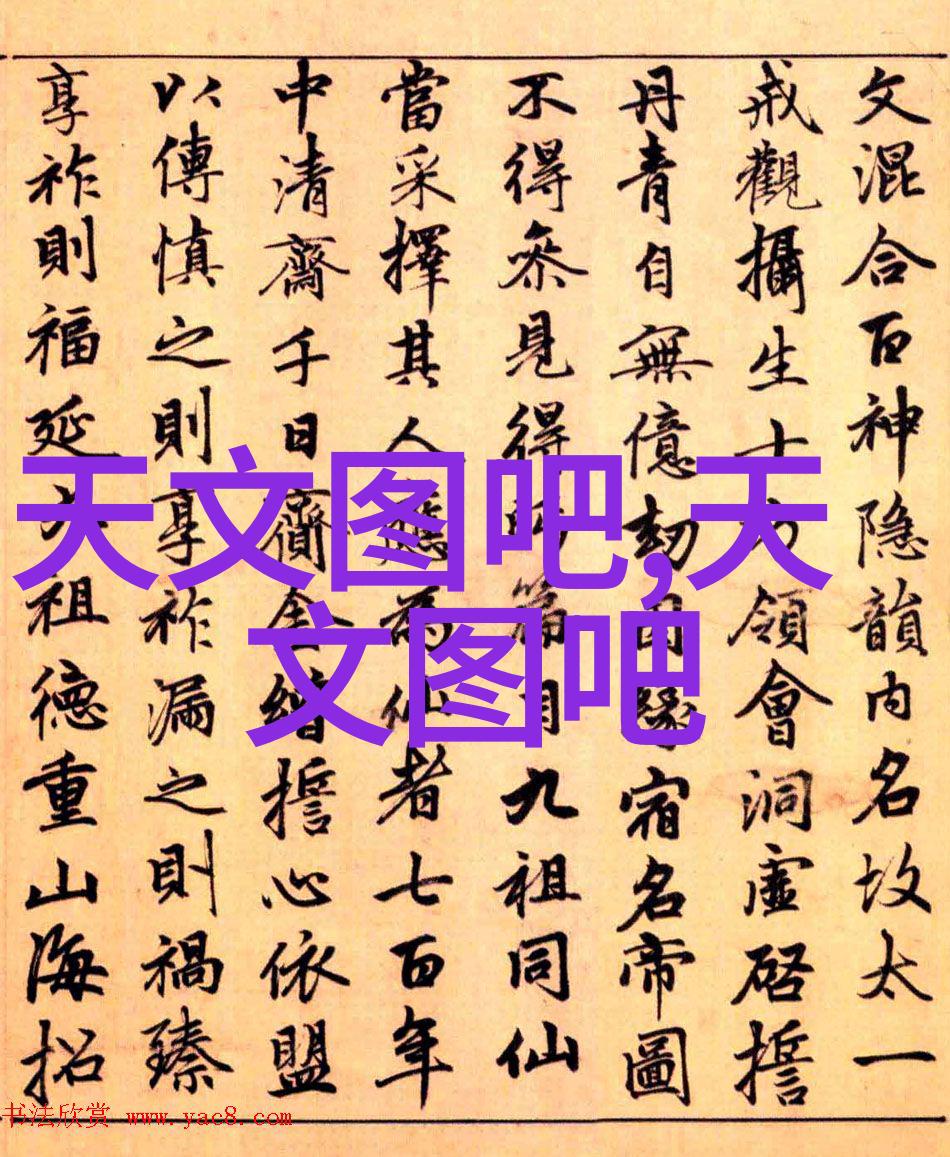 文混合百神隐韻内名故太一
戒觀攝生十方領會洞虛啓誓
丹青自無億劫因緣宿名帝圖
不得叅見得所篇目九祖同仙
當采擇其人應為仙者七百年
中清齋千日齎金繒誓心依盟
以傳慎之則享祚漏之則禍臻
享祚則福延七祖德重山海招
天文图吧,天
文图吧
书法欣赏 www.yac8.com